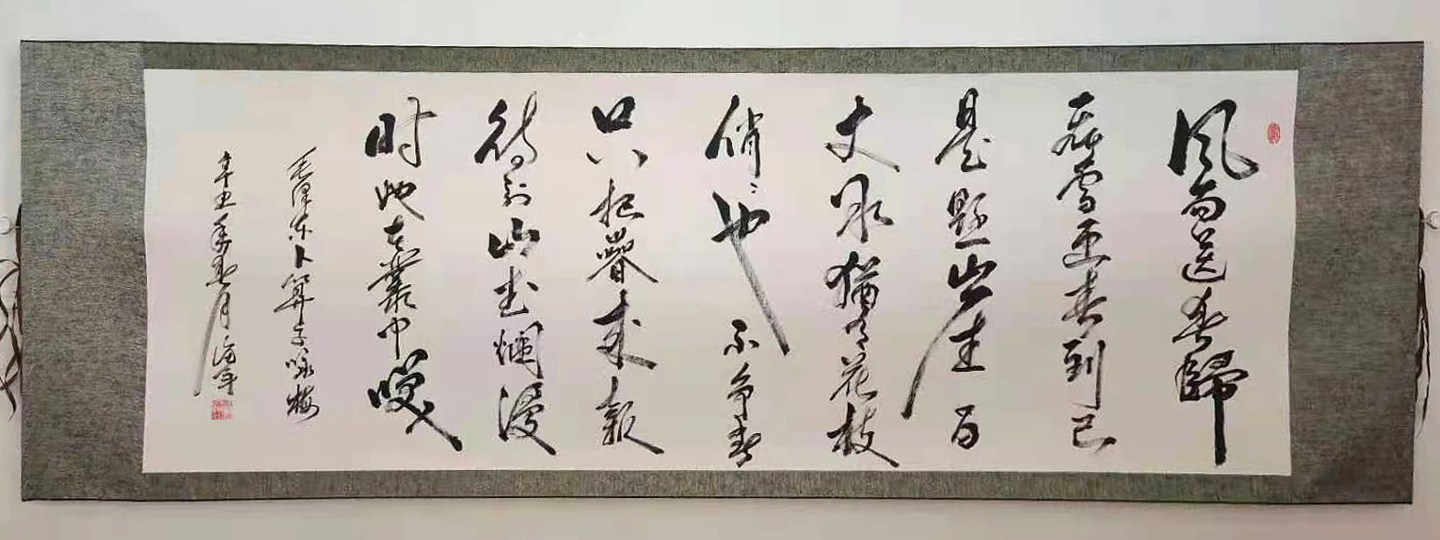 风雨送春歸
飛雪迎春到已
是懸崖百
丈冰猶有花枝
俏〻也不争春
只把春来報
待到山花爛漫
时她在叢中笑
毛泽东卜算子咏梅
辛丑年春月